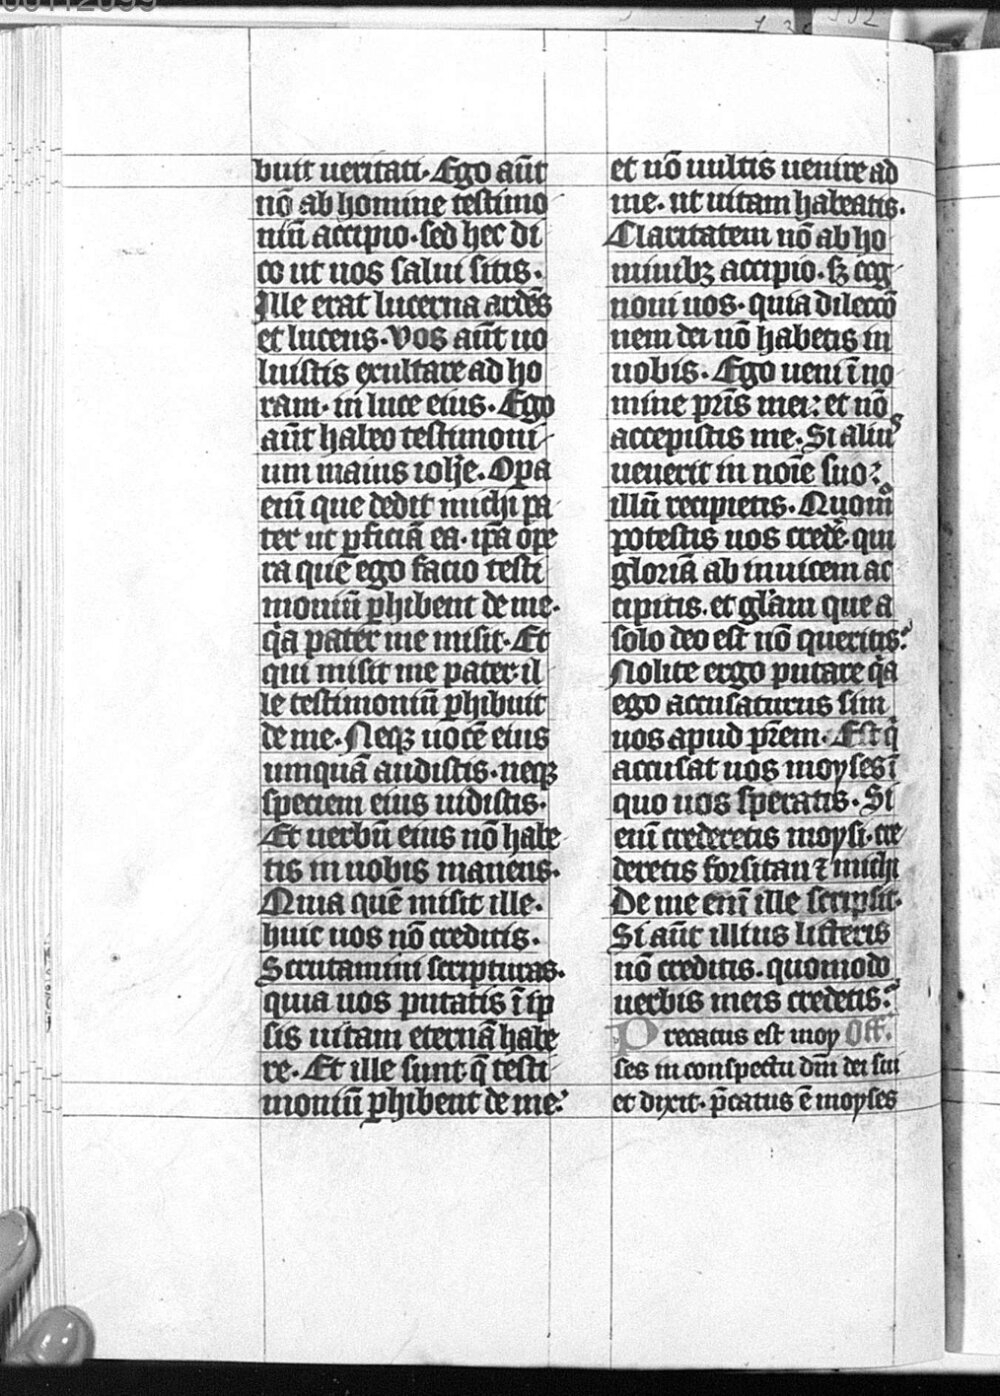 buit ueritati. Ego aūt
nō ab homine testimo
niū accipio. sed hec di
co ut uos salui sitis.
Ille erat lucerna ardēs
et lucens. Vos aūt uo
luistis exultare ad ho
ram. in luce eius. Ego
aūt habeo testimoni
um maius ioh̄e. Oꝑa
eni̅ que dedit michi pa
ter ut ꝑficiā ea. ip̄a ope
ra que ego facio testi
moniū ꝑhibent de me.
q̇a pater me misit. Et
qui misit me pater. il
le testimoniū ꝑhibuit
de me. Neqꝫ uocē eius
umquā audistis. neqꝫ
speciem eius uidistis.
Et uerbū eius nō habe
tis in uobis manens.
Quia quē misit ille.
huic uos nō creditis.
Scrutamini scripturas.
quia uos putatis ī ip
sis uitam eternā habe
re. Et ille sunt q̄ testi
moniū ꝑhibent de me.
et nō uultis uenire ad
me. ut uitam habeatis.
Claritatem nō ab ho
minibꝫ accipio. sꝫ cog
noui uos. quia dilecco̅
nem dei nō habetis in
uobis. Ego ueni ī no
mine pr̄is mei: et nō
accepistis me. Si aliuˢ
uenerit in noīe suo:
illū recipietis. Quomᵒ
potestis uos crede̅. qui
gloriā ab inuicem ac
cipitis. et gl̄am que a
solo deo est nō queritis.
Nolite ergo putare q̇a
ego accusaturus sim
uos apud pr̄em. Est qⁱ
accusat uos moyses ī
quo uos speratis. Si
eni̅ crederetis moysi. cre
deretis forsitan ⁊ michi
De me eni̅ ille scripsit.
Si aūt illius litteris
nō creditis. quomodo
uerbis meis credetis.
Precatus est moy Off.
ses in conspectu dn̄i dei sui
et dixit. p̄catus ē moyses